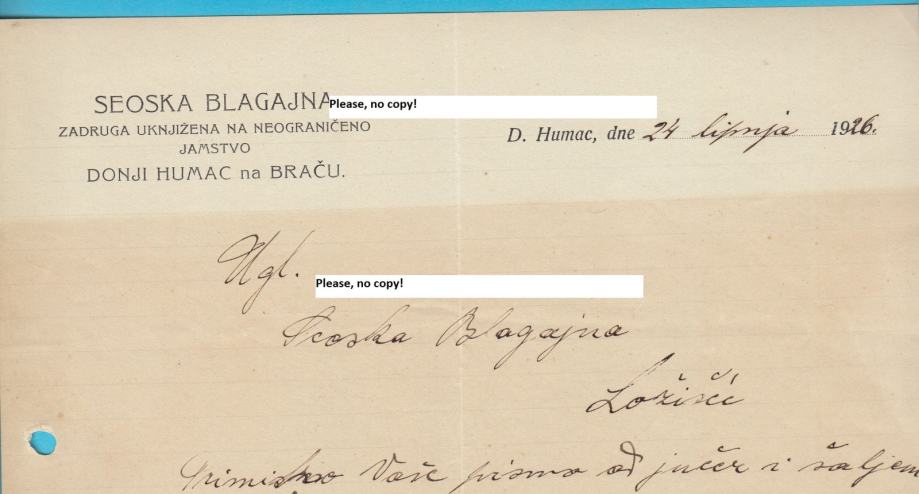 SEOSKA BLAGAJNA
Please, no copy!
ZADRUGA UKNJIŽENA NA NEOGRANIČENO
JAMSTVO
DONJI HUMAC na BRAČU.
D. Humac, dne 24 lipnja 1926.
Ugl.
Please, no copy!
Seoska Blagajna
Ložišći
Primismo Vaše pismo od jučer i šaljem